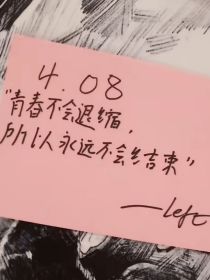 4.08
"青春不会退缩，
所以永远不会结束"
—left